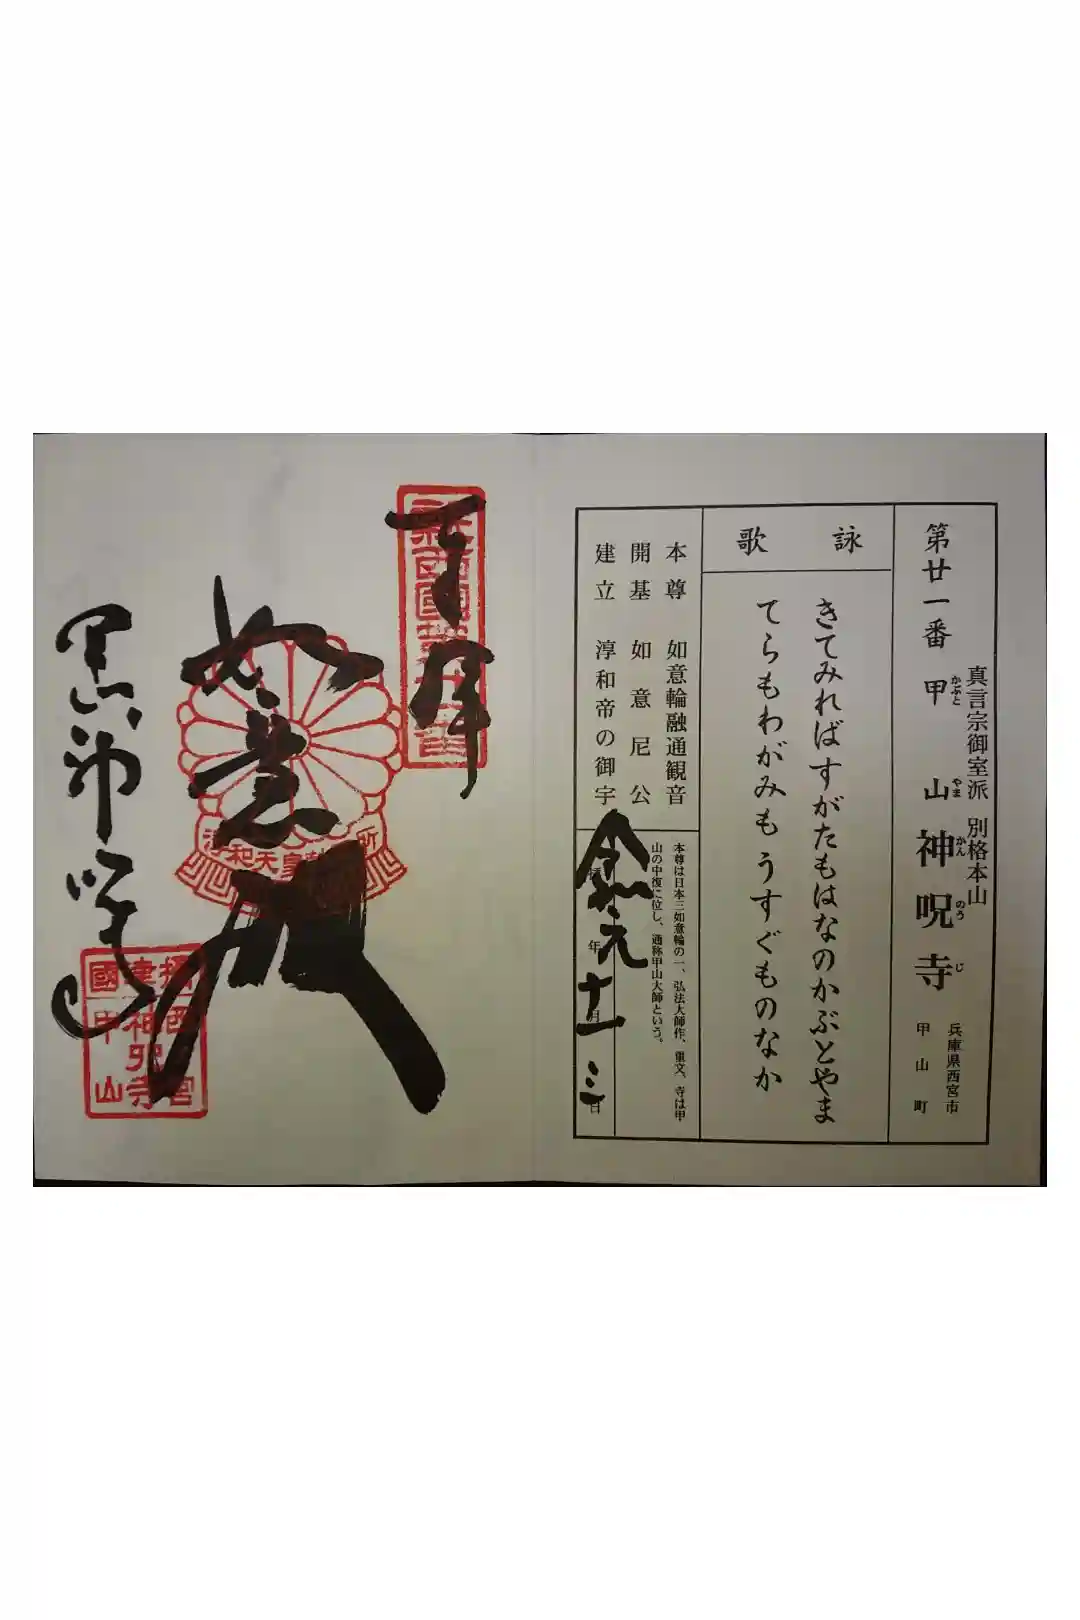 真言宗御室派 別格本山
第廿一番 甲山 神呪寺
かぶと やま かんのうじ
兵庫県西宮市
甲山町
詠歌
きてみればすがたもはなのかぶとやま
てらもわがみも うすぐものなか
本尊 如意輪融通観音
開基 如意尼公
建立 淳和帝の御宇
本尊は日本三如意輪の一、弘法大師作、重文、寺は甲
山の中復に位し、通称甲山大師という。
年 月 日
令和元 十一 三
奉拝
如意輪
神呪寺
摂津國
西宮
神呪寺
甲山